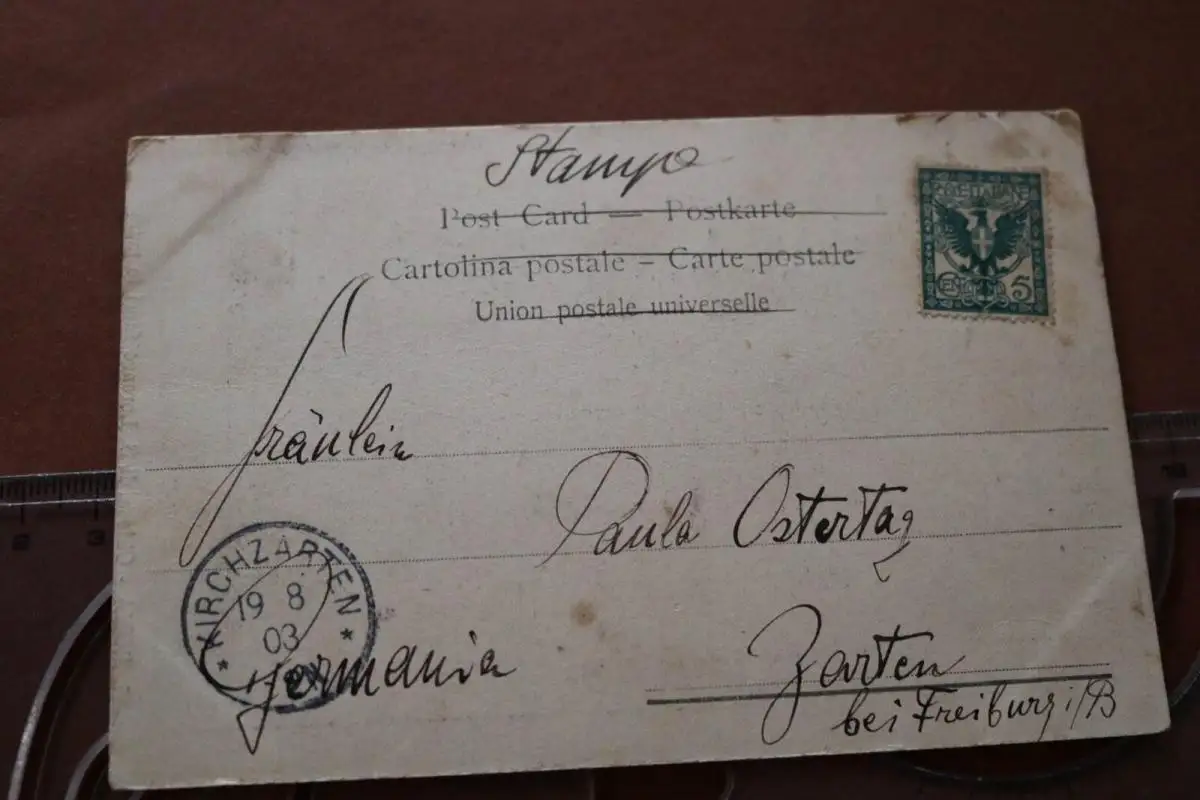 Stampe
Post Card — Postkarte
Cartolina postale – Carte postale
Union postale universelle
POSTE ITALIANE
5
Fräulein
Paula Ostertag
KIRCHZARTEN
19 8
03
Germania
Zarten
bei Freiburg i/B
2 3